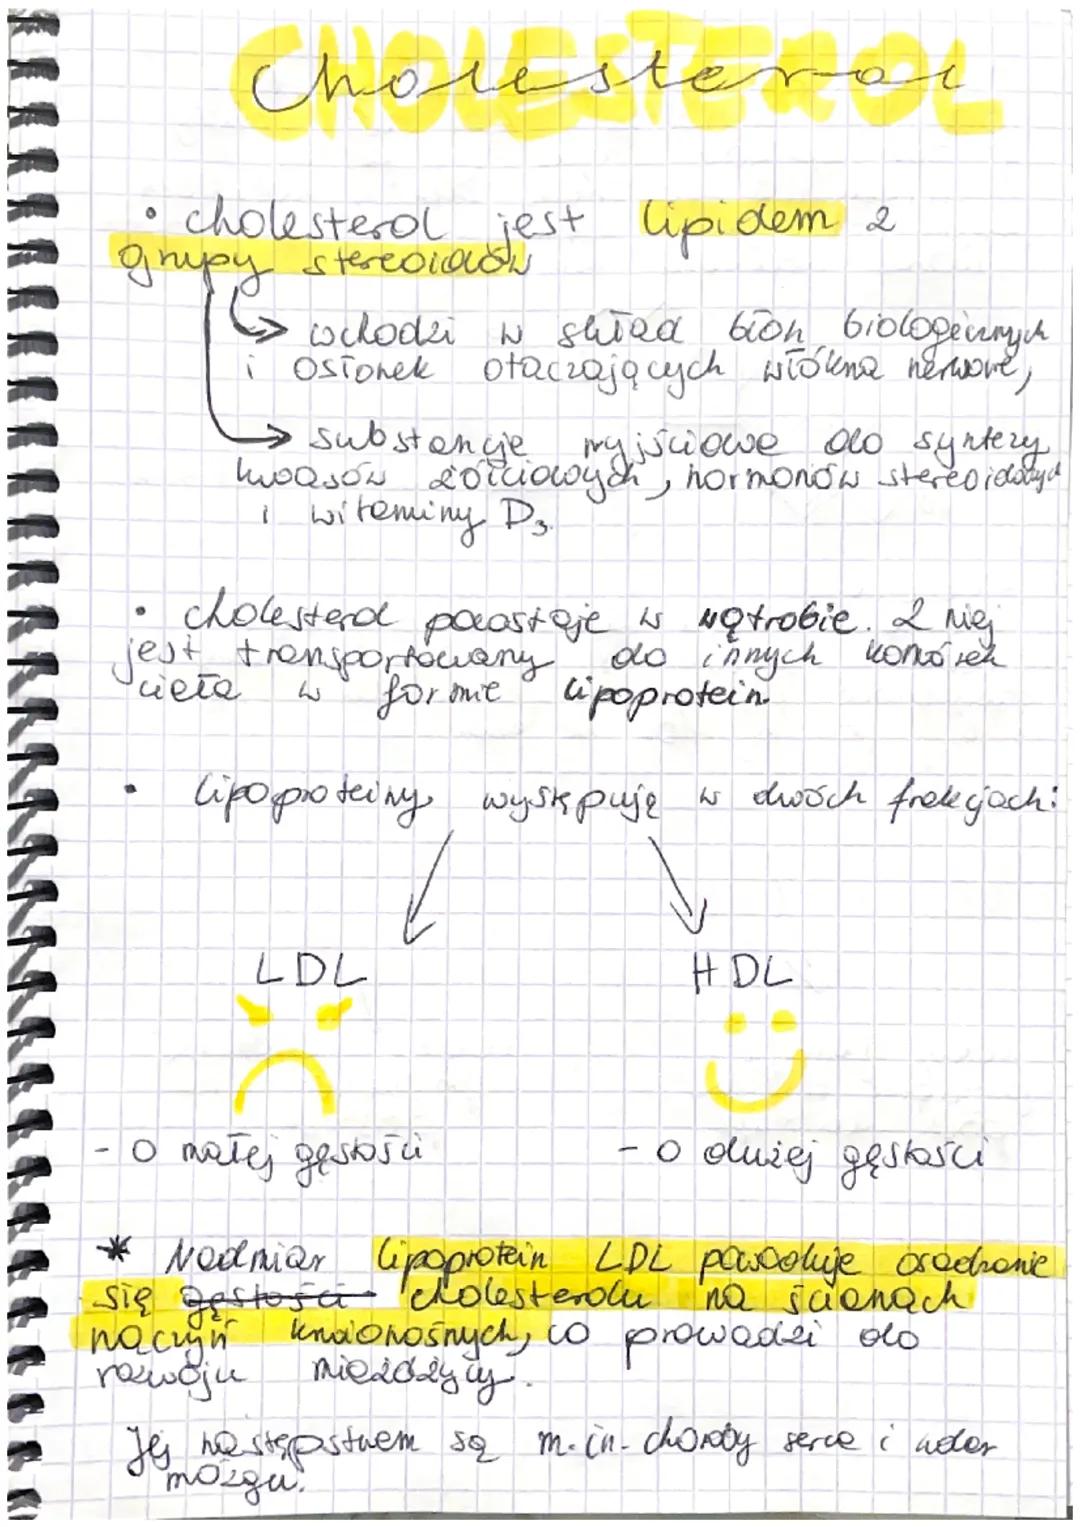 Cholesterol
• cholesterol jest lipidem z
grupy stereoidów
→ wchodzi w skład błon biologicznych
i osłonek otaczających włókna nerwowe,
→ substancje wyjściowe do syntezy
kwasów żółciowych, hormonów stereoidowych
i witaminy D₃
• cholesterol powstaje w wątrobie. Z niej
jest transportowany do innych komórek
ciała w formie lipoprotein
• lipoproteiny występują w dwóch frakcjach:
LDL HDL
- o małej gęstości - o dużej gęstości
* Nadmiar lipoprotein LDL powoduje osadzanie
się gęstości cholesterolu na ścianach
naczyń krwionośnych, co prowadzi do
rozwoju miażdżycy.
Jej następstwem są m.in. choroby serca i udar
mózgu.